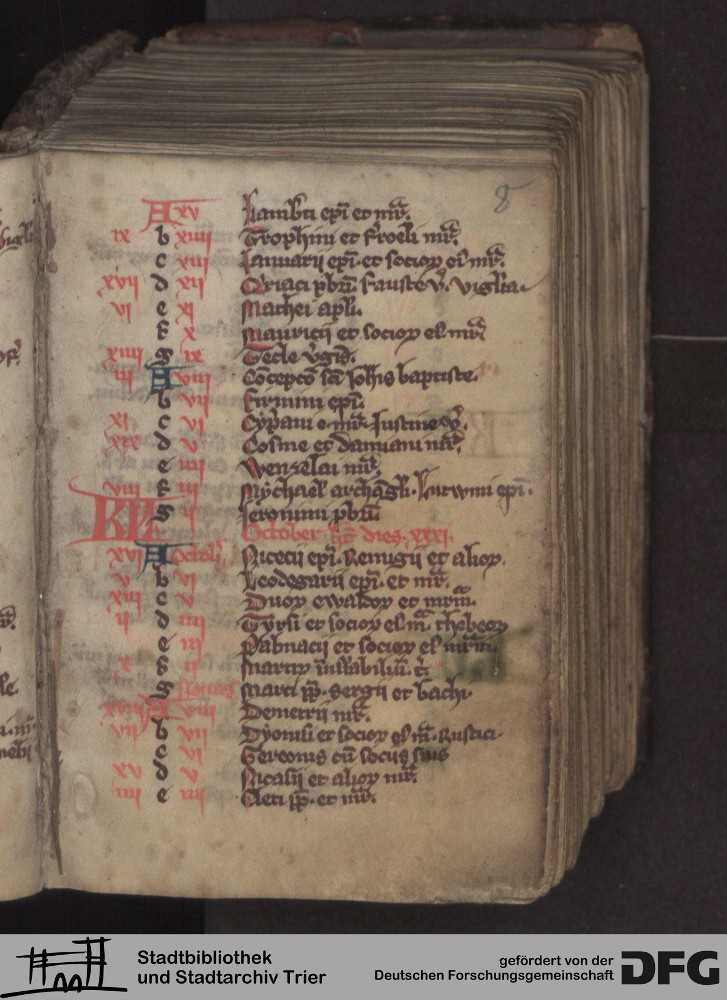 8
A xv Lambti epi et mr̄.
ix b xiiii Trophimi et
c xiii Ianuarii epi et socioꝝ ei mr̄.
xvii d xii pbri fauste v̄. viglia.
vi e xi Mathei apli.
f x Mauricii et socioꝝ ei mr̄
xiiii g ix Tecle v̄gis.
iii A viii Cōcepcō sci Iohis baptiste.
b vii Firmini epi.
xi c vi Cypani e mr̄. Iustine v̄.
xix d v Cosme et damiani mr̄.
e iiii Wenzelai mr̄.
viii f iii Mychael archāgli. Lutwini epi.
g ii Ieronimi pbri
KL October ht dies xxxi.
xvi A Octob. Nicecii epi. Remigii et alioꝝ.
v b vi Leodegarii epi. et mr̄.
xiii c v Duoꝝ ewaldoꝝ et mrm̄.
ii d iiii Tyrsi et socioꝝ ei m̄. thebeoꝝ
e iii et socioꝝ ei mrm̄.
x f ii Martirū
g Nonas Marci pp. Sergii et bachi.
xviii A viii Demetrii mr̄.
vii b vii Dyonisii et socioꝝ ei m̄. Rustici.
c vi Gereonis cū sociis suis
xv d v Nicasii et alioꝝ mr̄.
iiii e iiii Cleti pp. et mr̄.
Stadtbibliothek
und Stadtarchiv Trier
gefördert von der
Deutschen Forschungsgemeinschaft DFG